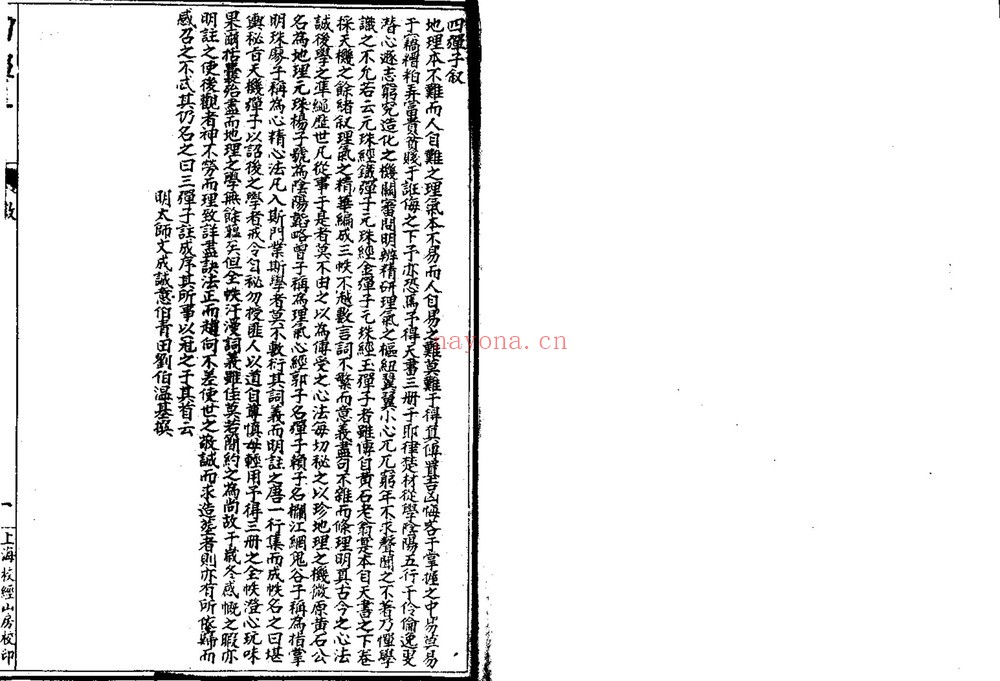 四彈子叙
地理本不難而人自難之理氣本不易而人自易之難莫難于得真傳實吉凶悔吝于掌握之中易莫易
于竊糟粕弄富貴貧賤于誑侮之下予亦恐焉予得天書三册于耶律楚材從學陰陽五行于伶倫逸叟
潛心遜志窮究造化之機關審問明辨精研理氣之樞紐翼翼小心兀兀窮年不求聲聞之不著乃懼學
識之不允若云元珠經鐵彈子元珠經金彈子元珠經玉彈子者雖傳自黃石老翁是本自天書之下卷
採天機之餘緒叙理氣之精華編成三帙不越數言詞不繁而意義盡句不雜而條理明真古今之心法
誠後學之準繩歷世凡從事于是者莫不由之以為傳受之心法每切秘之以珍地理之機微原黃石公
名為地理元珠楊子號為陰陽韜略曾子稱為理氣心經郭子名彈子賴子名攔江網鬼谷子稱為指掌
明珠廖子稱為心精心法凡入斯門業斯學者莫不敷衍其詞義而明註之唐一行集而成帙名之曰堪
輿秘旨天機彈子以詔後之學者戒令勾秘勿授匪人以道自尊慎毋輕用予得三册之全帙澄心玩味
果爾括囊殆盡而地理之學無餘蘊矣但全帙汗漫詞義雖佳莫若簡約之為尚故于歲冬感慨之暇亦
明註之使後觀者神不勞而理致詳盡訣法正而趨向不差使世之敬誠而求造塋者則亦有所依歸而
感召之不忒其仍名之曰三彈子註成序其所事以冠之于其首云
明太師文成誠意伯青田劉伯溫基撰
叙
一
上海校經山房校印
nayona.cn